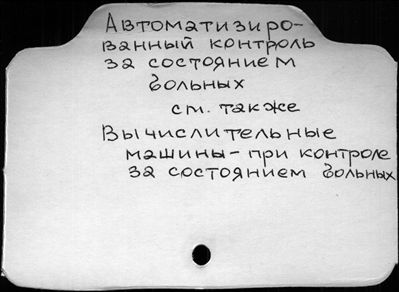 Автоматизиро-
ванный контроль
за состоянием
больных
см. также
Вычислительные
машины - при контроле
за состоянием больных